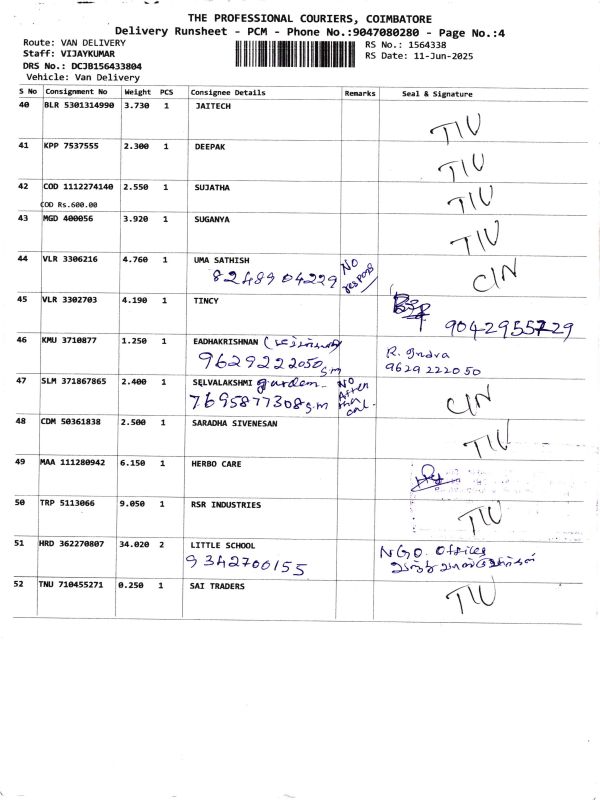 THE PROFESSIONAL COURIERS, COIMBATORE
Delivery Runsheet - PCM - Phone No.:9047080280 - Page No.:4
Route: VAN DELIVERY
RS No.: 1564338
Staff: VIJAYKUMAR
RS Date: 11-Jun-2025
DRS No.: DCJB156433804
Vehicle: Van Delivery
S No Consignment No Weight PCS Consignee Details Remarks Seal & Signature
40 BLR 5301314990 3.730 1 JAITECH TIU
41 KPP 7537555 2.300 1 DEEPAK TIU
42 COD 1112274140 2.550 1 SUJATHA TIU
COD Rs.600.00
43 MGD 400056 3.920 1 SUGANYA TIU
44 VLR 3306216 4.760 1 UMA SATHISH No CIN
8248904229
45 VLR 3302703 4.190 1 TINCY
9042955729
46 KMU 3710877 1.250 1 EADHAKRISHNAN R. Indra
9629222050 sm 9629222050
47 SLM 371867865 2.400 1 SELVALAKSHMI garden NO After CIN
7695877308 sm
48 CDM 50361838 2.500 1 SARADHA SIVENESAN TIU
49 MAA 111280942 6.150 1 HERBO CARE
50 TRP 5113066 9.050 1 RSR INDUSTRIES TIU
51 HRD 362270807 34.020 2 LITTLE SCHOOL NGO. Offices
9342700155
52 TNU 710455271 0.250 1 SAI TRADERS TIU